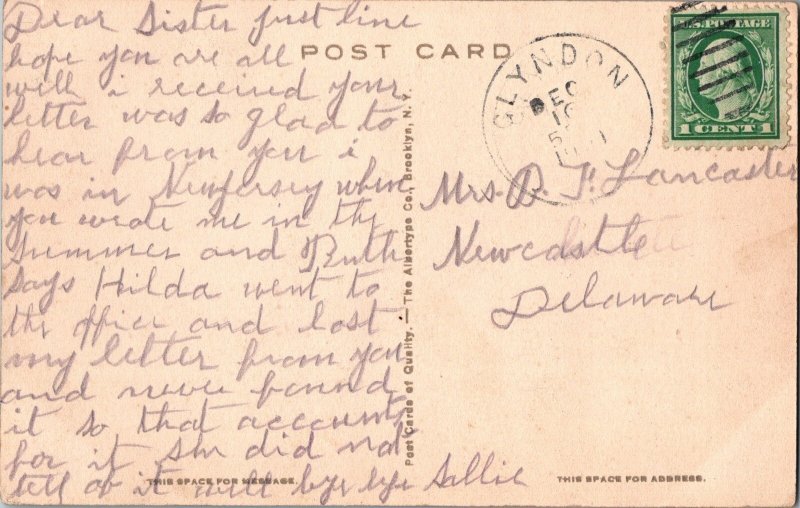 Dear Sister just line
hope you are all
well i received your
letter was so glad to
hear from you i
was in Newjersey when
you wrote me in the
summer and Ruth
says Hilda went to
the office and lost
my letter from you
and never found
it so that accounts
for it she did not
tell of it will bye bye Sallie
POST CARD
GLYNDON
DEC
U.S. POSTAGE
1 CENT 1
Mrs. D. F. Lancaster
Newcastle
Delaware
Post Cards of Quality. — The Albertype Co., Brooklyn, N. Y.
THIS SPACE FOR MESSAGE.
THIS SPACE FOR ADDRESS.